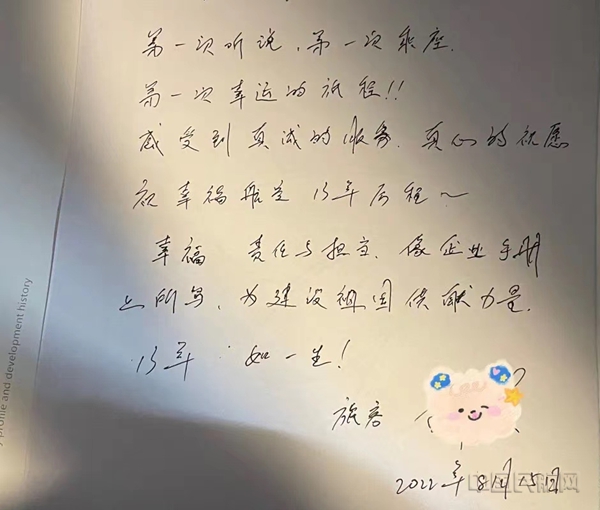 第一次听说,第一次乘座.
第一次幸运的旅程!!
感受到真诚的服务.真心的祝愿
祝幸福航空13年历程~
幸福 责任与担当.像企业手册
上所写,为建设祖国供献力量.
13年:如一生!
旅客
2022年8月15日
profile and development history
中国民航网